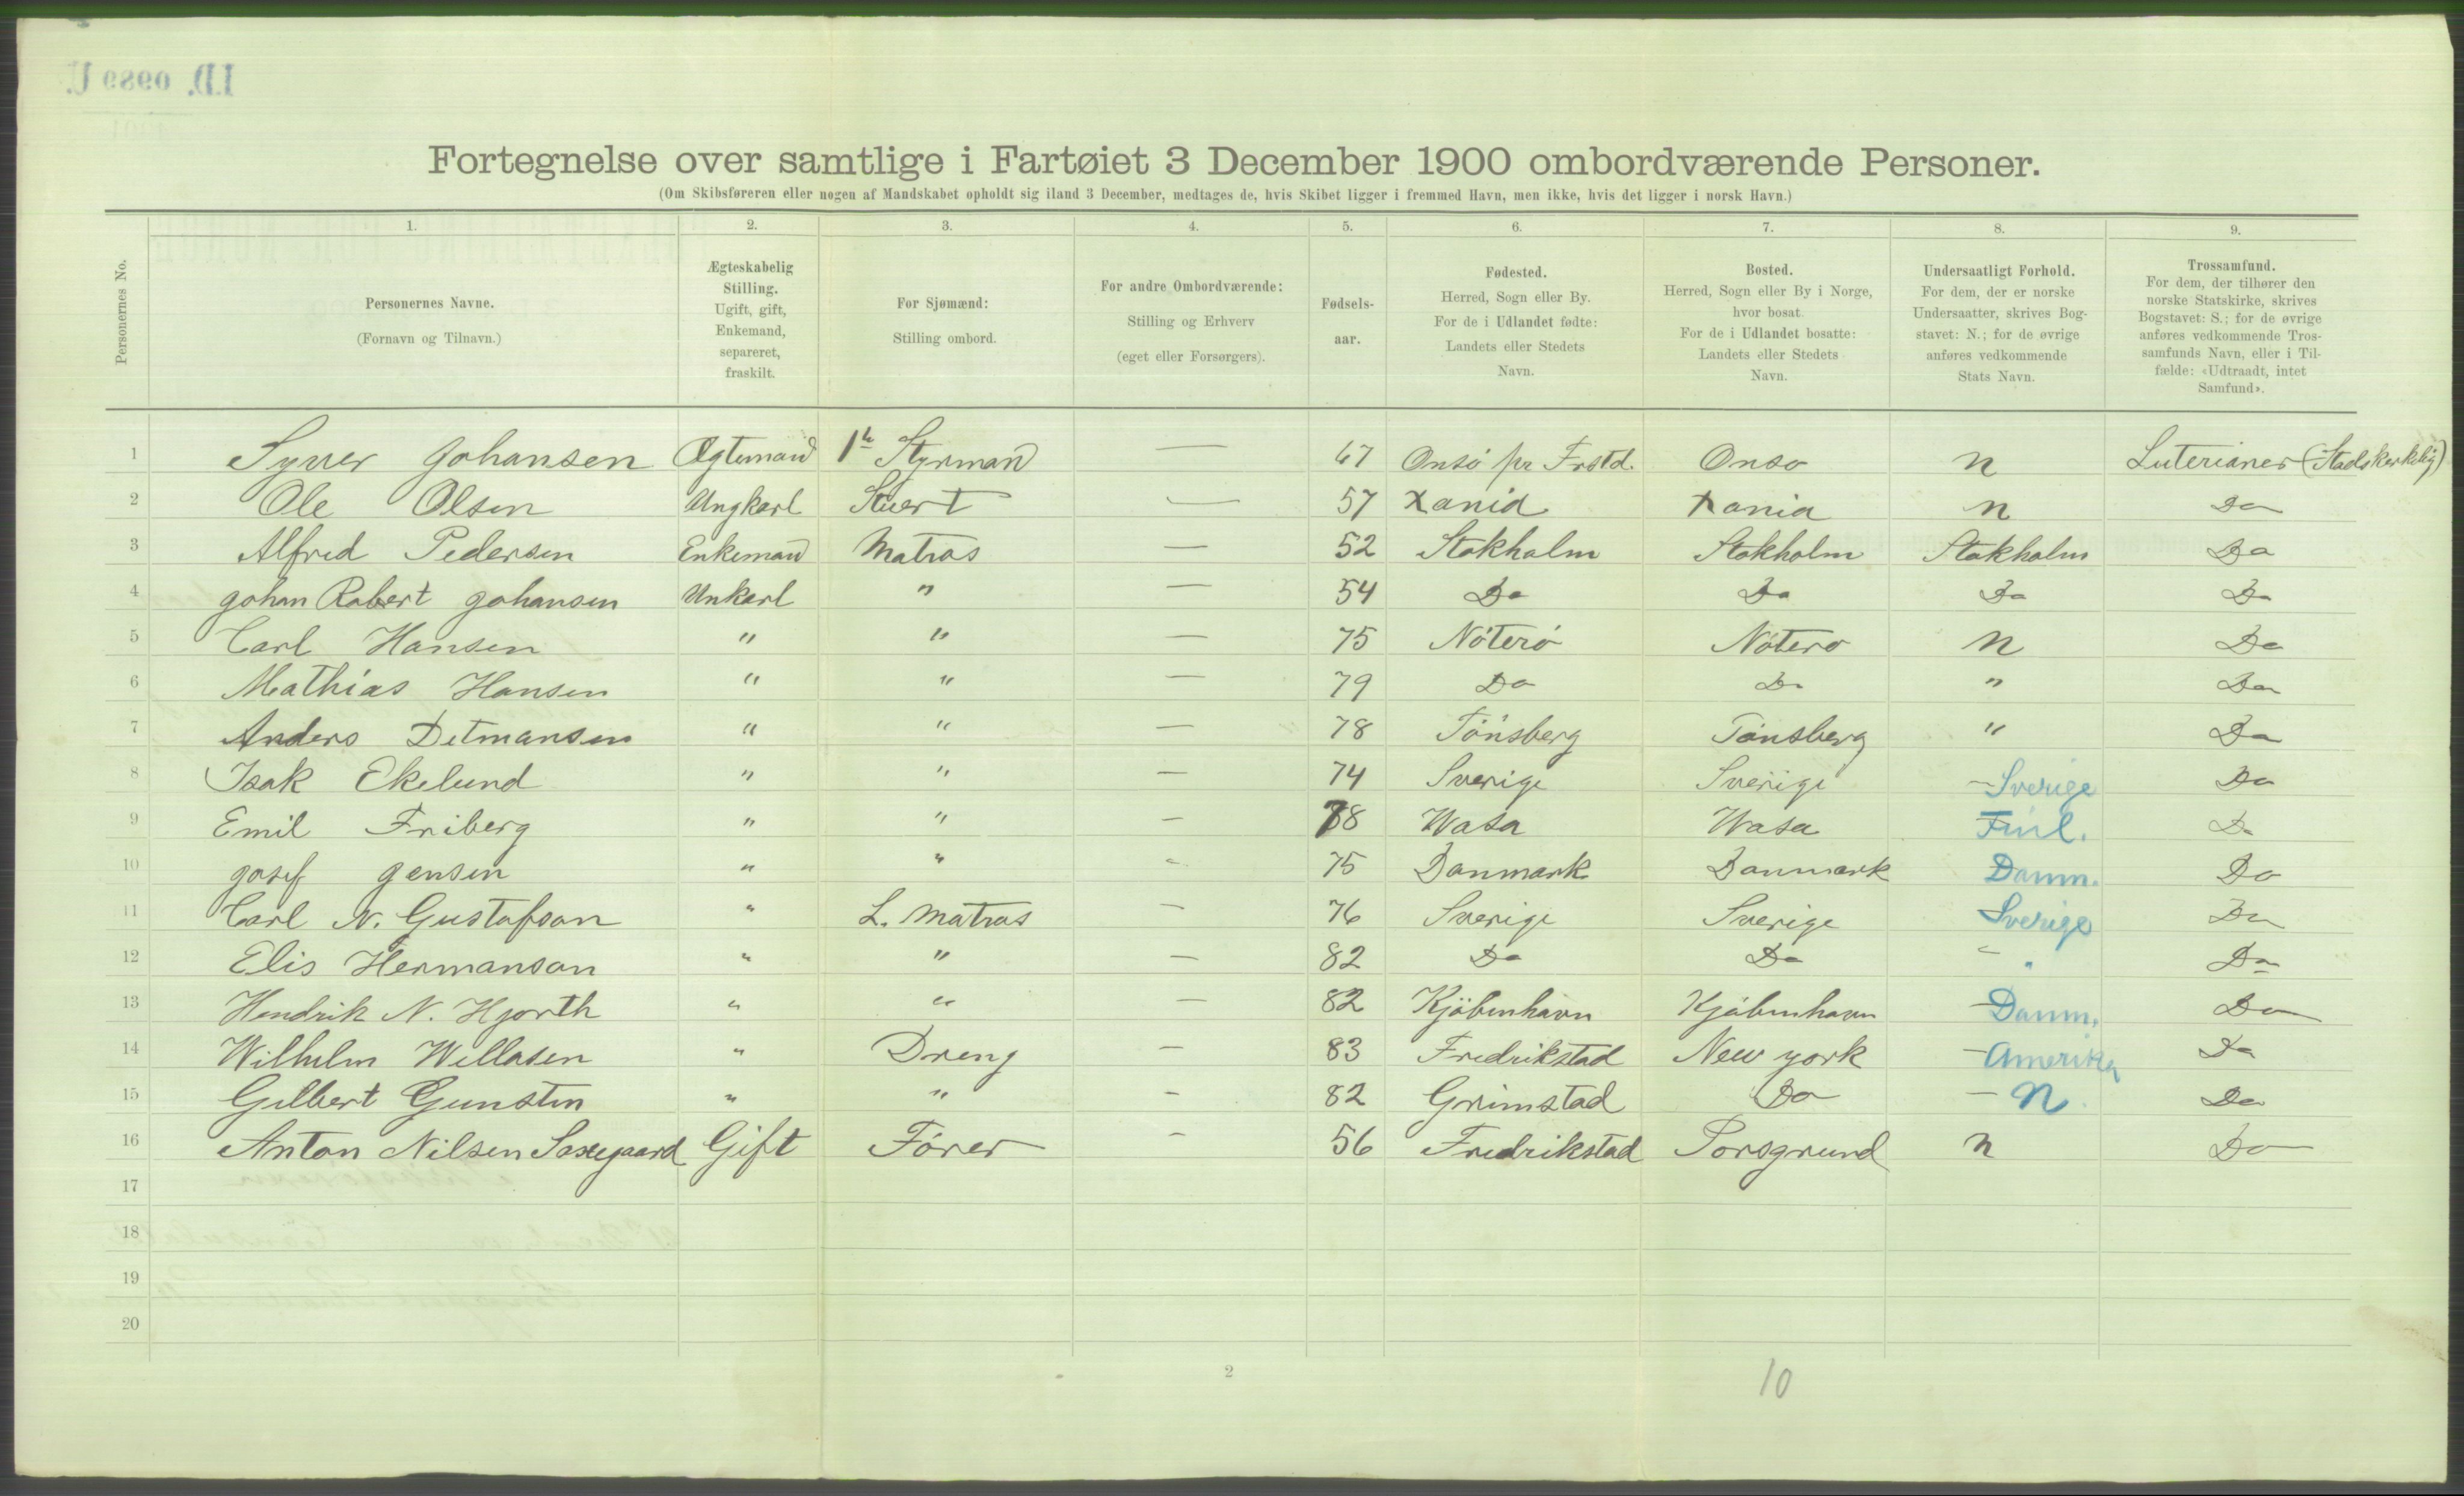 I.D. 0989 U.
Fortegnelse over samtlige i Fartøiet 3 December 1900 ombordværende Personer.
(Om Skibsføreren eller nogen af Mandskabet opholdt sig iland 3 December, medtages de, hvis Skibet ligger i fremmed Havn, men ikke, hvis det ligger i norsk Havn.)
Personernes No.
1.
Personernes Navne.
(Fornavn og Tilnavn.)
2.
Ægteskabelig
Stilling.
Ugift, gift,
Enkemand,
separeret,
fraskilt.
3.
For Sjømænd:
Stilling ombord.
4.
For andre Ombordværende:
Stilling og Erhverv
(eget eller Forsørgers).
5.
Fødsels-
aar.
6.
Fødested.
Herred, Sogn eller By.
For de i Udlandet fødte:
Landets eller Stedets
Navn.
7.
Bosted.
Herred, Sogn eller By i Norge,
hvor bosat.
For de i Udlandet bosatte:
Landets eller Stedets
Navn.
8.
Undersaatligt Forhold.
For dem, der er norske
Undersaatter, skrives Bog-
stavet: N.; for de øvrige
anføres vedkommende
Stats Navn.
9.
Trossamfund.
For dem, der tilhører den
norske Statskirke, skrives
Bogstavet: S.; for de øvrige
anføres vedkommende Tros-
samfunds Navn, eller i Til-
fælde: «Udtraadt, intet
Samfund».
1 Syver Johansen Ægtemand 1ste Styrmand — 67 Onsö pr Frstd. Onso N Luterianer (Stadskerkelig)
2 Ole Olsen Ungkarl Stuert — 57 Xania Xania N Do
3 Alfred Pedersen Enkemand Matros — 52 Stokholm Stokholm Stokholm Do
4 Johan Robert Johansen Unkarl " — 54 Do Do Do Do
5 Carl Hansen " " — 75 Nöterö Nötero N Do
6 Mathias Hansen " " — 79 Do Do " Do
7 Anders Ditmansen " " — 78 Tönsberg Tönsberg " Do
8 Isak Ekelund " " — 74 Sverige Sverige - Sverige Do
9 Emil Friberg " " — 78 Wasa Wasa Finl. Do
10 Josef Jensen " " - 75 Danmark Danmark Danm. Do
11 Carl N. Gustafson " L. Matros — 76 Sverige Sverige Sverige Do
12 Elis Hermanson " " — 82 Do Do - " Do
13 Hendrik N. Hjorth " " — 82 Kjöbenhavn Kjöbenhavn - Danm. Do
14 Wilhelm Willasen " Dreng — 83 Fredrikstad New York - Amerika Do
15 Gilbert Gunsten " " - 82 Grimstad Do - N Do
16 Anton Nilsen Saxegaard Gift Förer - 56 Fredrikstad Porsgrund N Do
17
18
19
20
2
10